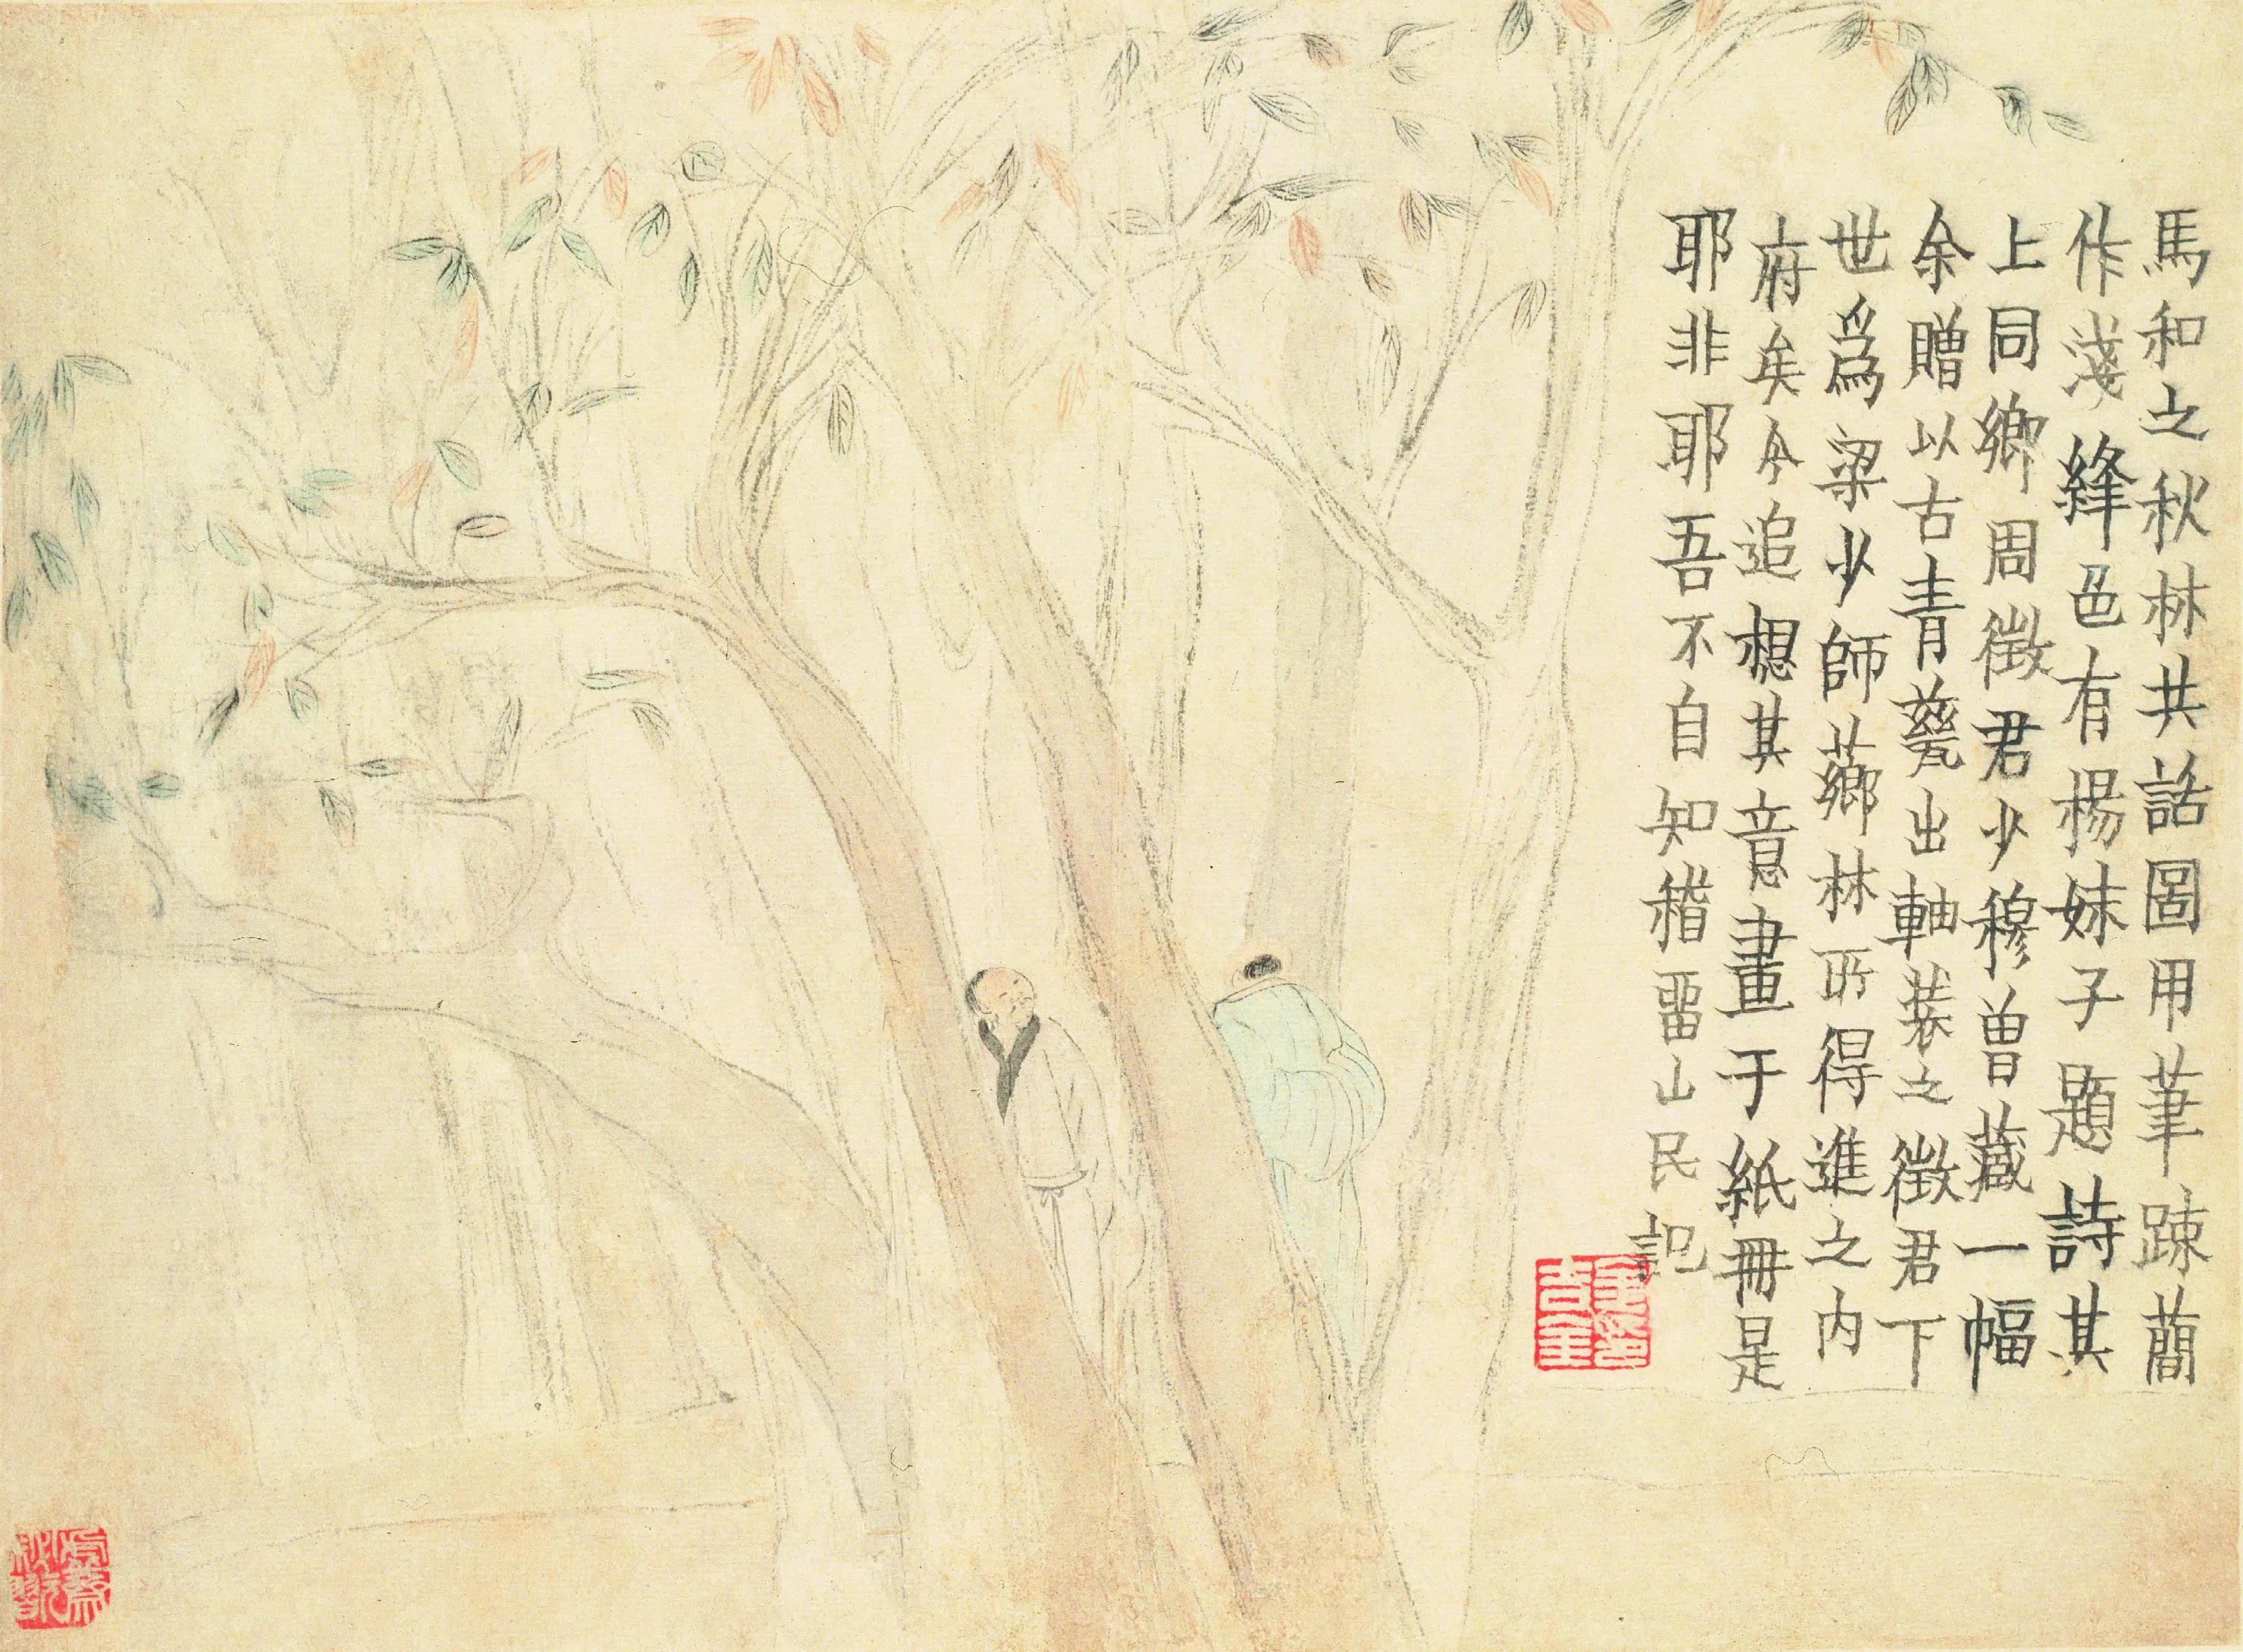 馬和之秋林共話圖用筆疎蕑
作淺絳色有楊妹子題詩其
上同鄉周徵君少穆曾藏一幅
余贈以古青甆出軸裝之徵君下
世爲梁少師薌林所得進之内
府矣今追想其意畫于紙冊是
耶非耶吾不自知稽畱山民記